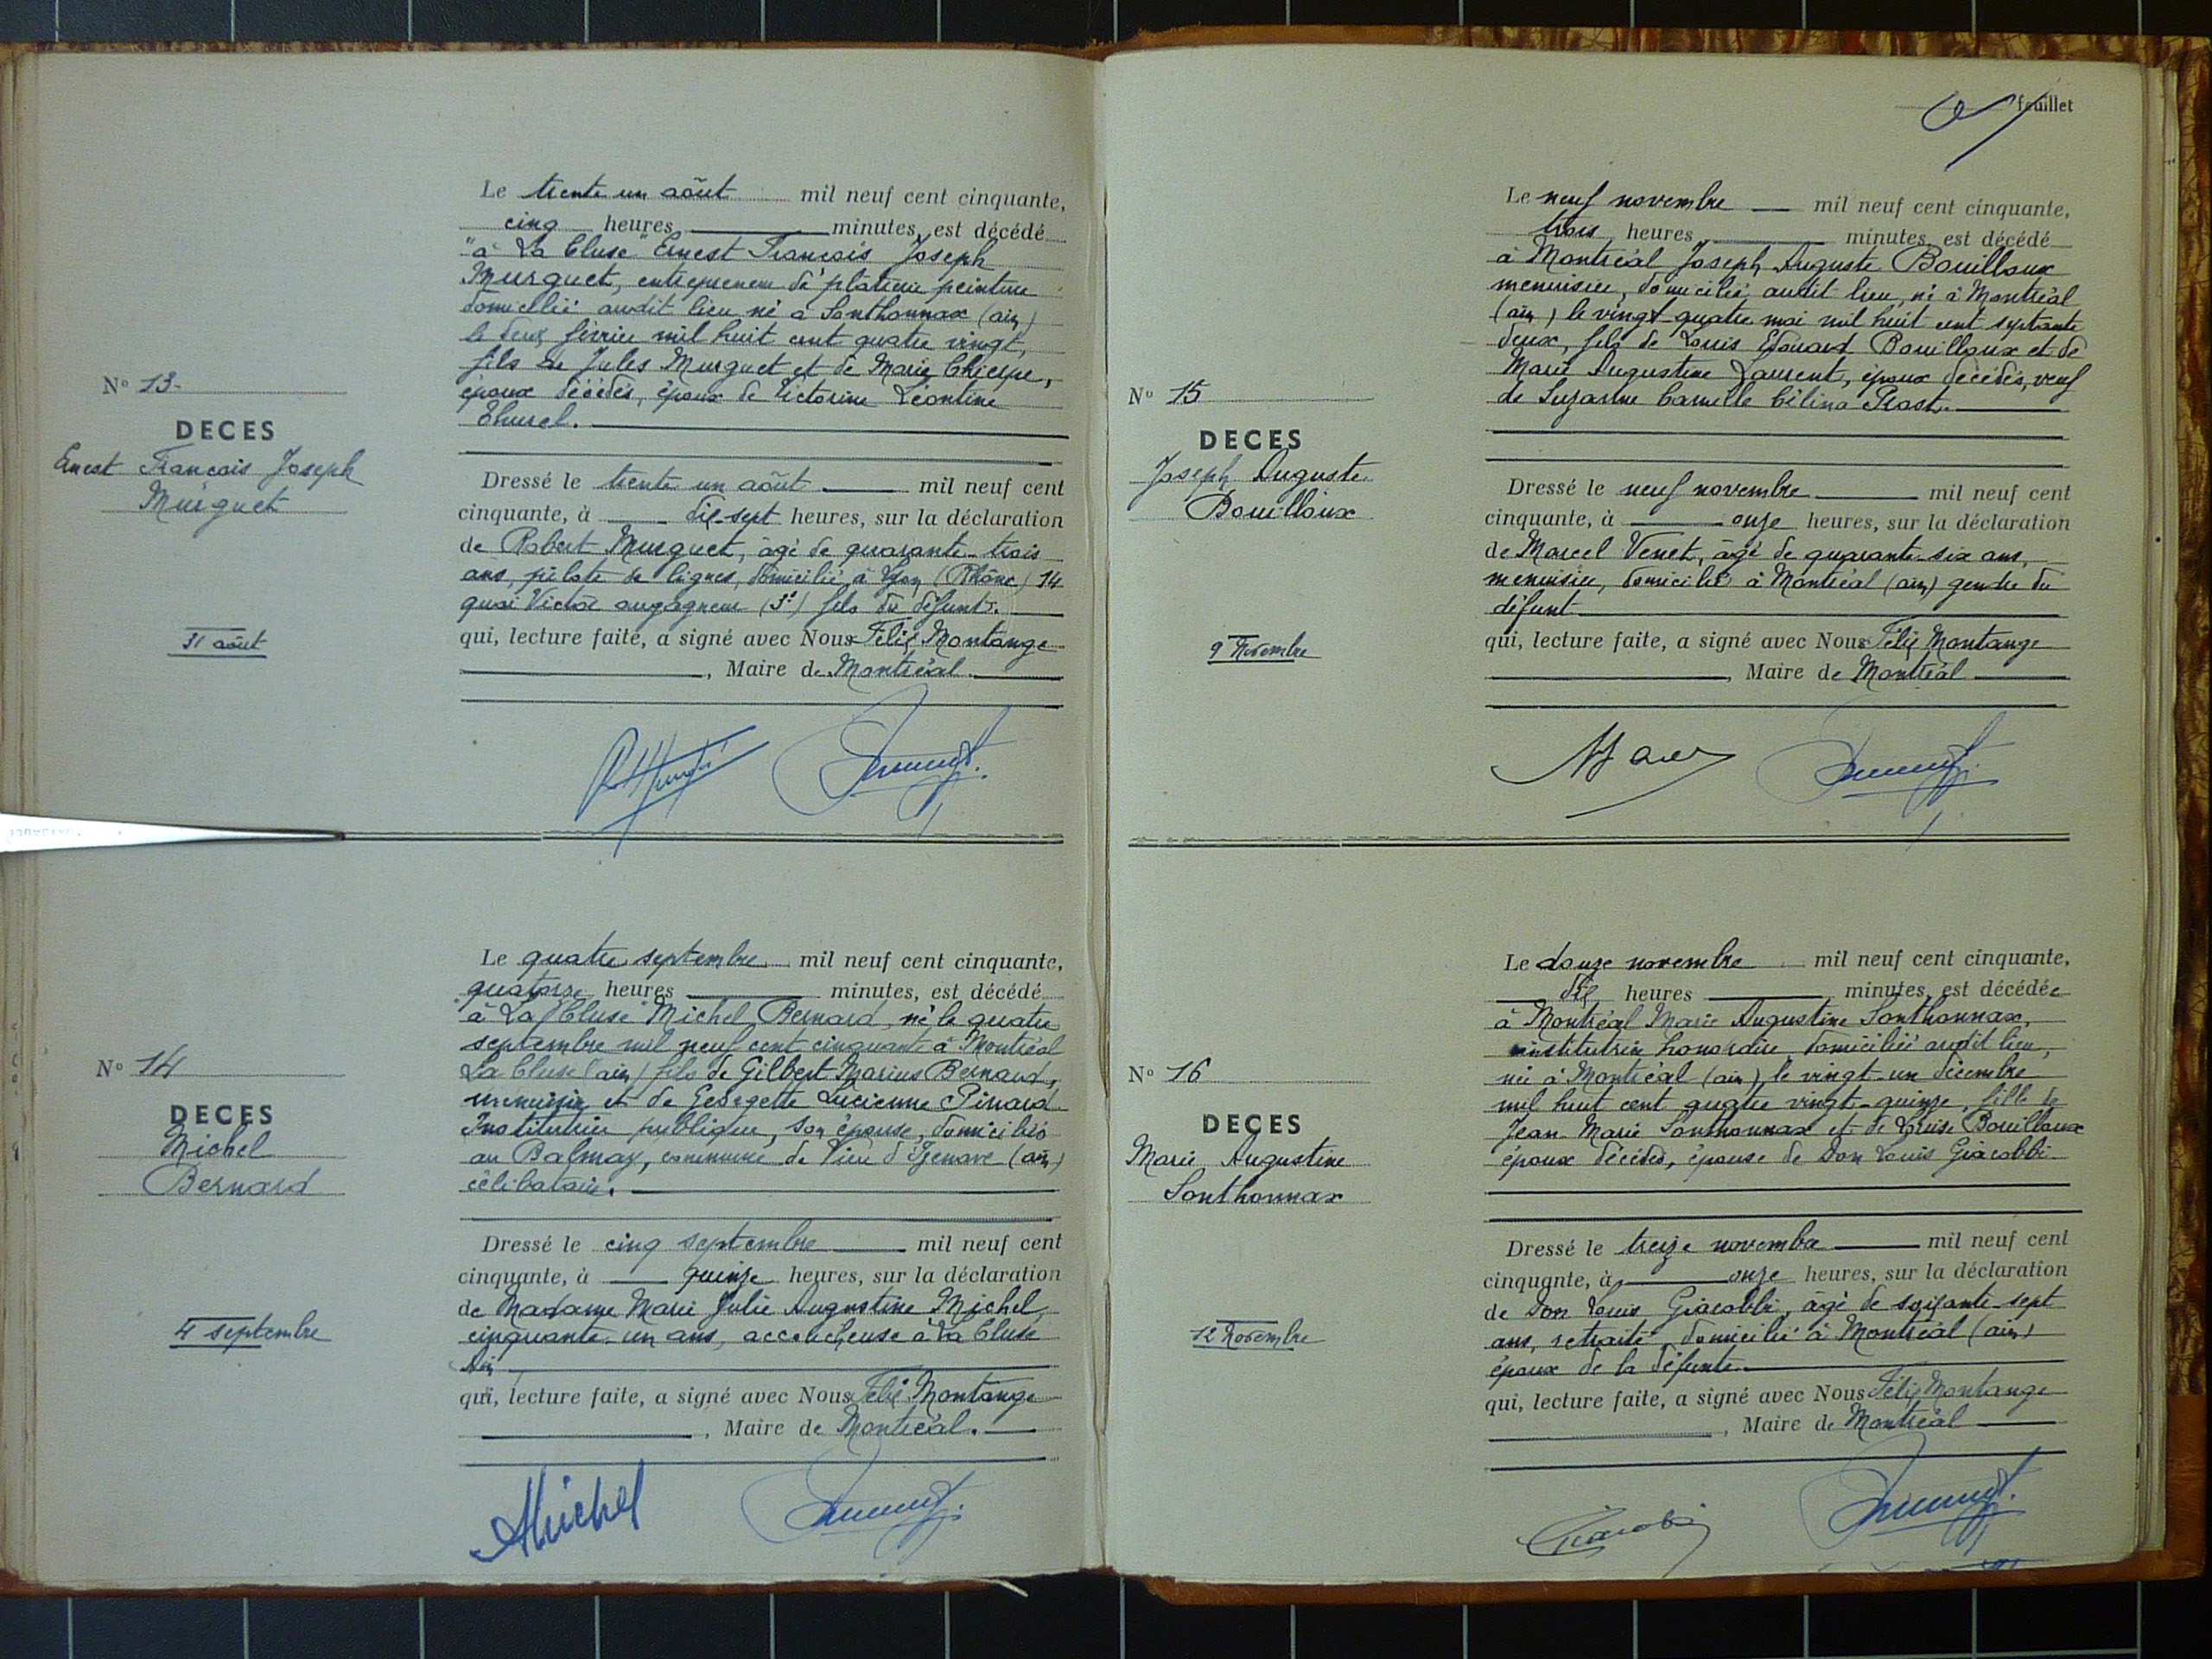 Le trente un août mil neuf cent cinquante,
cinq heures minutes, est décédé
"à La Cluse" Ernest François Joseph
Murguet, entrepreneur de plâtrerie peinture
domicilié audit lieu né à Sonthonnax (ain)
le deux février mil huit cent quatre vingt,
fils de Jules Murguet et de Marie
époux décédés, époux de Victorine Léontine
N° 13
DECES
Ernest François Joseph
Murguet
31 août
Dressé le trente un août mil neuf cent
cinquante, à dix-sept heures, sur la déclaration
de Robert Murguet, âgé de quarante-trois
ans, pilote de lignes, domicilié à Lyon (Rhône) 14
quai Victor augagneur (3e) fils du défunt.
qui, lecture faite, a signé avec Nous Félix Montange
, Maire de Montréal.
Le quatre septembre mil neuf cent cinquante,
quatorze heures minutes, est décédé
"à La Cluse" Michel Bernard, né le quatre
septembre mil neuf cent cinquante à Montréal
La Cluse (ain) fils de Gilbert Marius Bernard,
menuisier et de Georgette Lucienne Pinard
Institutrice publique, son épouse, domiciliés
au Balmay, commune de Vieu d'Izenave (ain)
célibataire.
N° 14
DECES
Michel
Bernard
4 septembre
Dressé le cinq septembre mil neuf cent
cinquante, à quinze heures, sur la déclaration
de Madame Marie Julie Augustine Michel
cinquante-un ans, accoucheuse à La Cluse
Ain
qui, lecture faite, a signé avec Nous Félix Montange
, Maire de Montréal.
AMichel
feuillet
Le neuf novembre mil neuf cent cinquante,
trois heures minutes, est décédé
à Montréal Joseph Auguste Bouilloux
menuisier, domicilié audit lieu, né à Montréal
(ain) le vingt-quatre mai mil huit cent septante
deux, fils de Louis Edouard Bouilloux et de
Marie Augustine Laurent, époux décédés, veuf
de Suzanne Camille Célina Prost.
N° 15
DECES
Joseph Auguste
Bouilloux
9 Novembre
Dressé le neuf novembre mil neuf cent
cinquante, à onze heures, sur la déclaration
de Marcel Venet, âgé de quarante-six ans,
menuisier, domicilié à Montréal (ain) gendre du
défunt
qui, lecture faite, a signé avec Nous Félix Montange
, Maire de Montréal
Le douze novembre mil neuf cent cinquante,
dix heures minutes, est décédée
à Montréal Marie Augustine Sonthonnax,
institutrice honoraire domiciliée audit lieu,
née à Montréal (ain), le vingt-un décembre
mil huit cent quatre vingt-quinze, fille de
Jean-Marie Sonthonnax et de Louise Bouilloux
époux décédés, épouse de Don Louis Giacobbi
N° 16
DECES
Marie Augustine
Sonthonnax
12 Novembre
Dressé le treize novembre mil neuf cent
cinquante, à onze heures, sur la déclaration
de Don Louis Giacobbi, âgé de soixante-sept
ans, retraité, domicilié à Montréal (ain)
époux de la défunte
qui, lecture faite, a signé avec Nous Félix Montange
, Maire de Montréal
Giacobbi